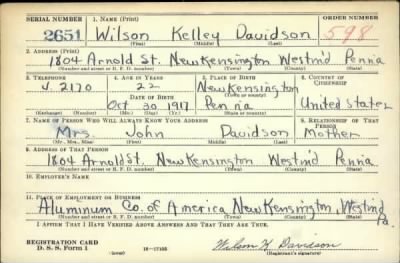 SERIAL NUMBER 1. NAME (Print) ORDER NUMBER
2651 Wilson Kelley Davidson 598
(First) (Middle) (Last)
2. ADDRESS (Print)
1804 Arnold St. New Kensington Westm'd Penna
(Number and street or R. F. D. number) (Town) (County) (State)
3. TELEPHONE 4. AGE IN YEARS 5. PLACE OF BIRTH 6. COUNTRY OF CITIZENSHIP
J. 2170 22 New Kensington
(Town or county)
DATE OF BIRTH
Oct 30 1917 Penna United States
(Exchange) (Number) (Mo.) (Day) (Yr.) (State or country)
7. NAME OF PERSON WHO WILL ALWAYS KNOW YOUR ADDRESS 8. RELATIONSHIP OF THAT PERSON
Mrs. John Davidson Mother
(Mr., Mrs., Miss) (First) (Middle) (Last)
9. ADDRESS OF THAT PERSON
1804 Arnold St. New Kensington Westm'd Penna
(Number and street or R. F. D. number) (Town) (County) (State)
10. EMPLOYER'S NAME
11. PLACE OF EMPLOYMENT OR BUSINESS
Aluminum Co. of America New Kensington, Westm'd Pa.
(Number and street or R. F. D. number) (Town) (County) (State)
I AFFIRM THAT I HAVE VERIFIED ABOVE ANSWERS AND THAT THEY ARE TRUE.
REGISTRATION CARD
D. S. S. Form 1 (over) 16-17105 Wilson K Davidson
(Registrant's signature)